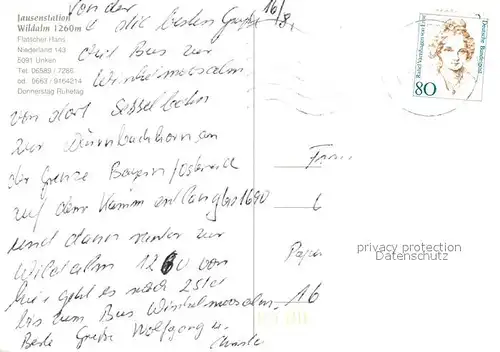 Jausenstation
Wildalm 1260m
Flatscher Hans
Niederland 143
5091 Unken
Tel. 06589 / 7286
od. 0663 / 9164214
Donnerstag Ruhetag
16/8
Von der
die besten Grüße
mit Bus zur
Winkelmoosalm
von dort Sesselbahn
zur Dürnbachhorn an
der Grenze Bayern/Österreich
auf dem Kamm entlang bis 1690
und dann runter zur
Wildalm 1260 von
hier geht es noch 2 Std
bis zum Bus Winkelmoosalm.
Beste Grüße Wolfgang u.
Frau
Papen
16
Rahel Varnhagen von Ense
Deutsche Bundespost
80
privacy protection
Datenschutz